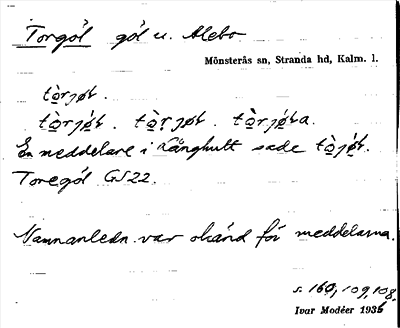 Torgöl göl u. Alebo
Mönsterås sn, Stranda hd, Kalm. l.
tòrjøḷ.
tòrjǿḷ. tòrjøḷ. tòrjǿḷa.
En meddelare i Kånghult sade tòjǿḷ.
Toregöl GS22.
Namnanledn. var okänd för meddelarna.
s. 160, 109, 108.
Ivar Modéer 1936